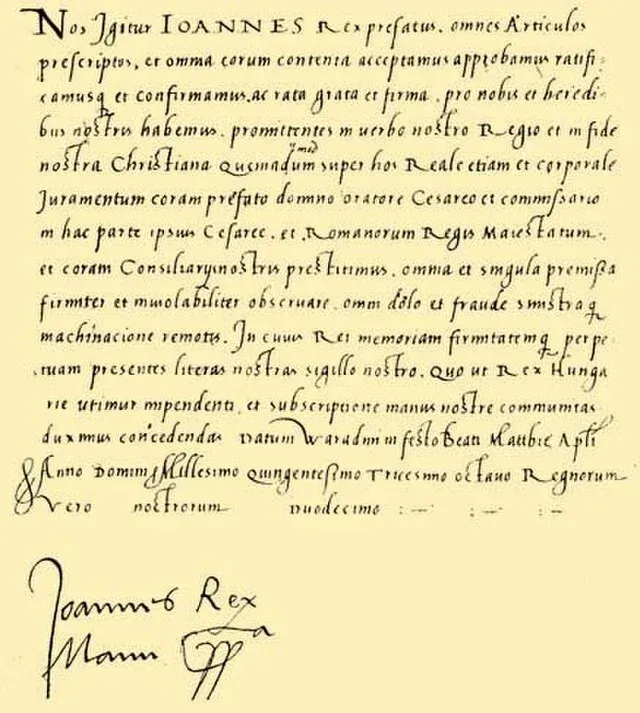 Nos Igitur IOANNES Rex prefatus. omnes Articulos
prescriptos, et omnia eorum contenta acceptamus approbamus ratifi-
camusq et confirmamus. ac rata grata et firma. pro nobis et heredi-
bus nostris habemus. promittentes in verbo nostro Regio et in fide
nostra Christiana Quemadmodum super hos Reale etiam et corporale
Juramentum coram prefato domino oratore Cesareo et commissario
in hac parte ipsius Cesaree. et. Romanorum Regis Maiestatum.
et coram Consiliarijs nostris prestitimus. omnia et singula premissa
firmiter et inviolabiliter observare. omni dolo et fraude sinistraq
machinacione remotis. In cuius Rei memoriam firmitatemq perpe-
tuam presentes literas nostras sigillo nostro. Quo ut Rex Hunga
rie utimur inpendenti, et subscriptione manus nostre communitas
duximus concedendas Datum Waradini in festo Beati Matthie Apli
Anno Domini Millesimo Quingentesimo Tricesimo octavo Regnorum
Vero nostrorum Duodecimo
Joannes Rex
Manu ppa